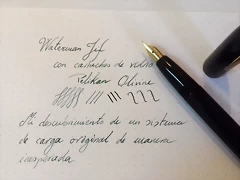 Waterman Jif
con cartuchos de vidrio
Pelikan Olivine
Mi descubrimiento de un sistema
de carga original de manera
inesperada